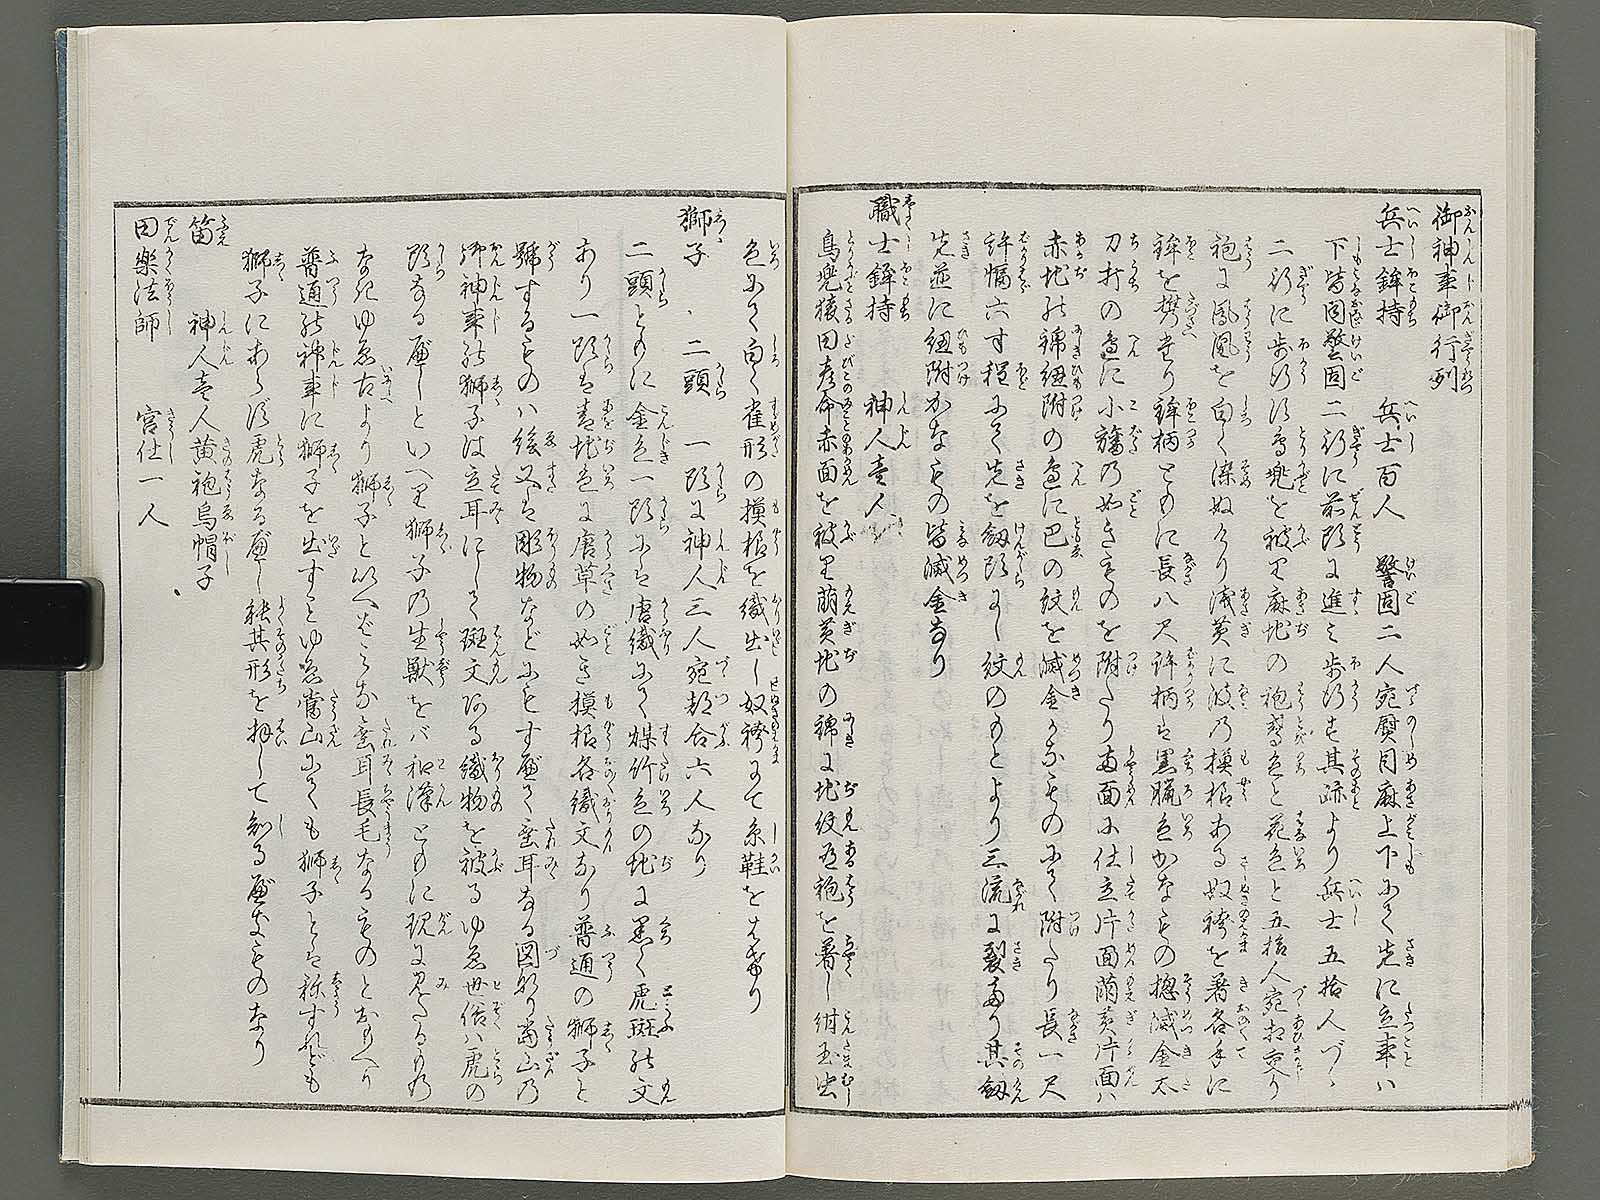 御神事御行列
兵士鉾持　兵士百人　警固二人宛熨目麻上下にて先に立事ハ
下皆同警固二行に前頭に進ミ歩行す其跡より兵士五拾人づゝ
二行に歩行次鳥兜を被り麻地の袍萌色と花色と五拾人宛相交り
袍に鳳凰を白く染ぬけり浅黄に波乃模様ある奴袴を着各手に
鉾を携たり鉾柄ともに長八尺許柄は黒臘色かなもの摠滅金太
刀打の辺に小旛乃如きものを附たり両面に仕立片面萌黄片面ハ
赤地の錦紐附の辺に巴の紋を滅金かなものにて附たり長一尺
許幅六寸程にて先を剱頭にし紋のもとより三流に裂あり其剱
先並に紐附かなもの皆滅金なり
職士鉾持　神人壱人
鳥兜猿田彦命赤面を被り萌黄地の錦に地紋有袍を着し紺玉虫
色にて白く雀形の摸様を織出し奴袴にて糸鞋をはけり
獅子　二頭　一頭に神人三人宛都合六人なり
二頭ともに金色一頭には唐織にて媒竹色の地に黒く虎斑の文
あり一頭は青地色に唐草の如き摸様各織文なり普通の獅子と
號するものハ絵又は彫物などにもす歴て垂耳なる図形り當山乃
御神事の獅子は立耳にして斑文ある織物を被るゆゑ世俗ハ虎の
頭なる歴しといへり獅子乃生獣をバ和漢ともに現に見たるもの
なきゆゑ古より獅子と以へどミな垂耳長毛なるものとおもへり
普通の神事に獅子を出すことゆゑ當山にても獅子とは称すれども
獅子にあらず虎なる歴し能其形を拝して知る歴きものなり
笛　神人壱人黄袍烏帽子
田樂法師　宮仕一人